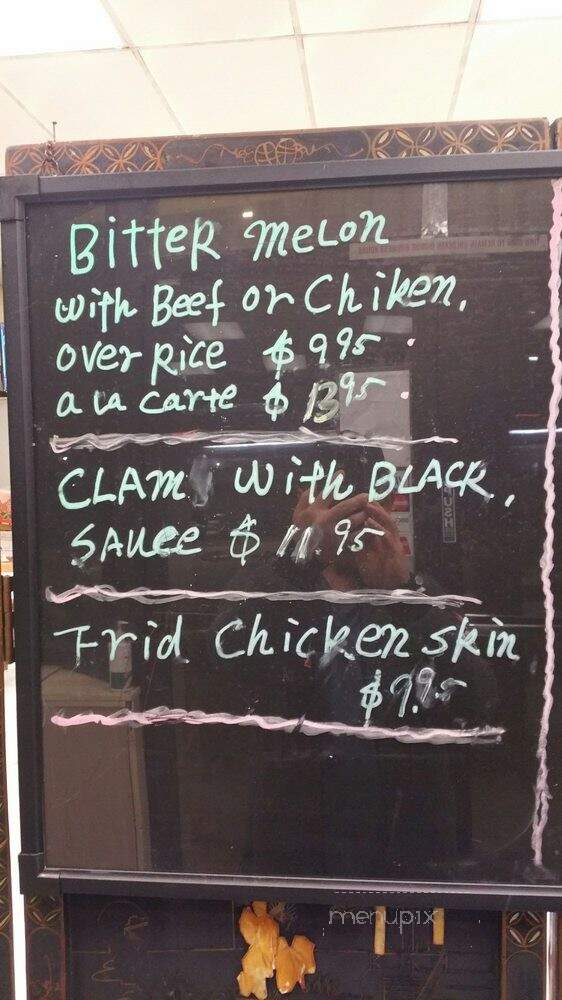 Bitter melon
with Beef or Chiken,
over Rice $ 9 95
a la carte $ 13 95
CLAM with BLACK,
SAUCE $ 11.95
Frid Chicken skin
$9.95
menupix